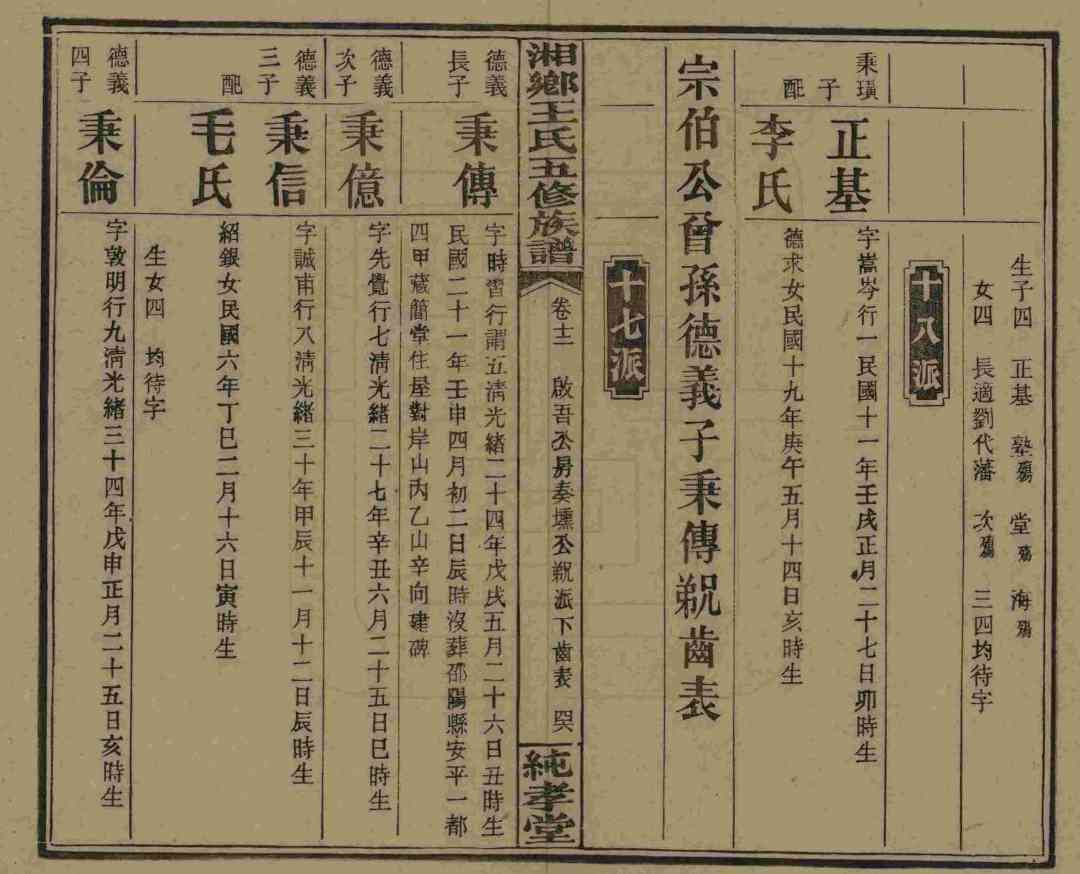 生子四 正基 塾殤 堂殤 海殤
女四 長適劉代藩 次殤 三四均待字
十八派
秉璜子
正基
字嵩岑行一民國十一年壬戌正月二十七日卯時生
配
李氏
德求女民國十九年庚午五月十四日亥時生
宗伯公曾孫德義子秉傳
齒表
十七派
湘鄉王氏五修族譜
卷十二 啟吾公房奏壎公
派下齒表
純孝堂
德義長子
秉傳
字時習行謂五清光緒二十四年戊戌五月二十六日丑時生
民國二十一年壬申四月初二日辰時沒葬邵陽縣安平一都
四甲藏簡堂住屋對岸山丙乙山辛向建碑
德義次子
秉億
字先覺行七清光緒二十七年辛丑六月二十五日巳時生
德義三子
秉信
字誠甫行八清光緒三十年甲辰十一月十二日辰時生
配
毛氏
紹銀女民國六年丁巳二月十六日寅時生
生女四 均待字
德義四子
秉倫
字敦明行九清光緒三十四年戊申正月二十五日亥時生